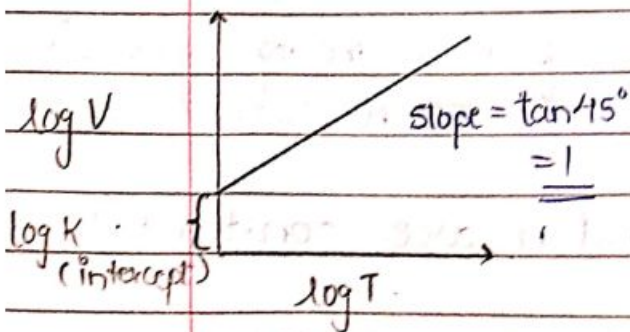 log V
slope = tan 45°
= 1
log K
(intercept)
log T